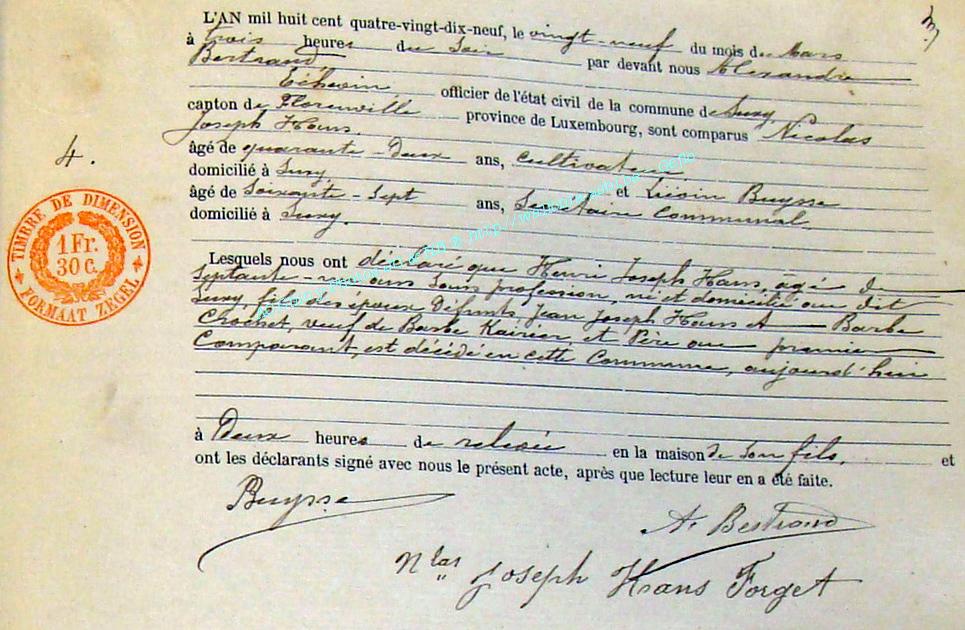 L'AN mil huit cent quatre-vingt-dix-neuf, le vingt-neuf du mois de Mars
à trois heures du Soir par devant nous Alexandre
Bertrand
Echevin officier de l'état civil de la commune de Suxy
canton de Florenville province de Luxembourg, sont comparus Nicolas
Joseph Hans.
âgé de quarante-deux ans, Cultivateur,
domicilié à Suxy, et Livin Buysse
âgé de Soixante-Sept ans, Secrétaire Communal
domicilié à Suxy.
Lesquels nous ont déclaré que Henri Joseph Hans, âgé de
Septante- ans, Sans profession, né et domicilié au dit
Suxy, fils des époux Défunts, Jean Joseph Hans et Barbe
Crochet, veuf de Barbe et Père au premier
Comparant, est décédé en cette Commune, aujourd'hui
à Deux heures de relevée en la maison de Son fils, et
ont les déclarants signé avec nous le présent acte, après que lecture leur en a été faite.
Buysse
A. Bertrand
Nlas Joseph Hans Forget
4.
TIMBRE DE DIMENSION
1 Fr.
30 C.
FORMAAT ZEGEL